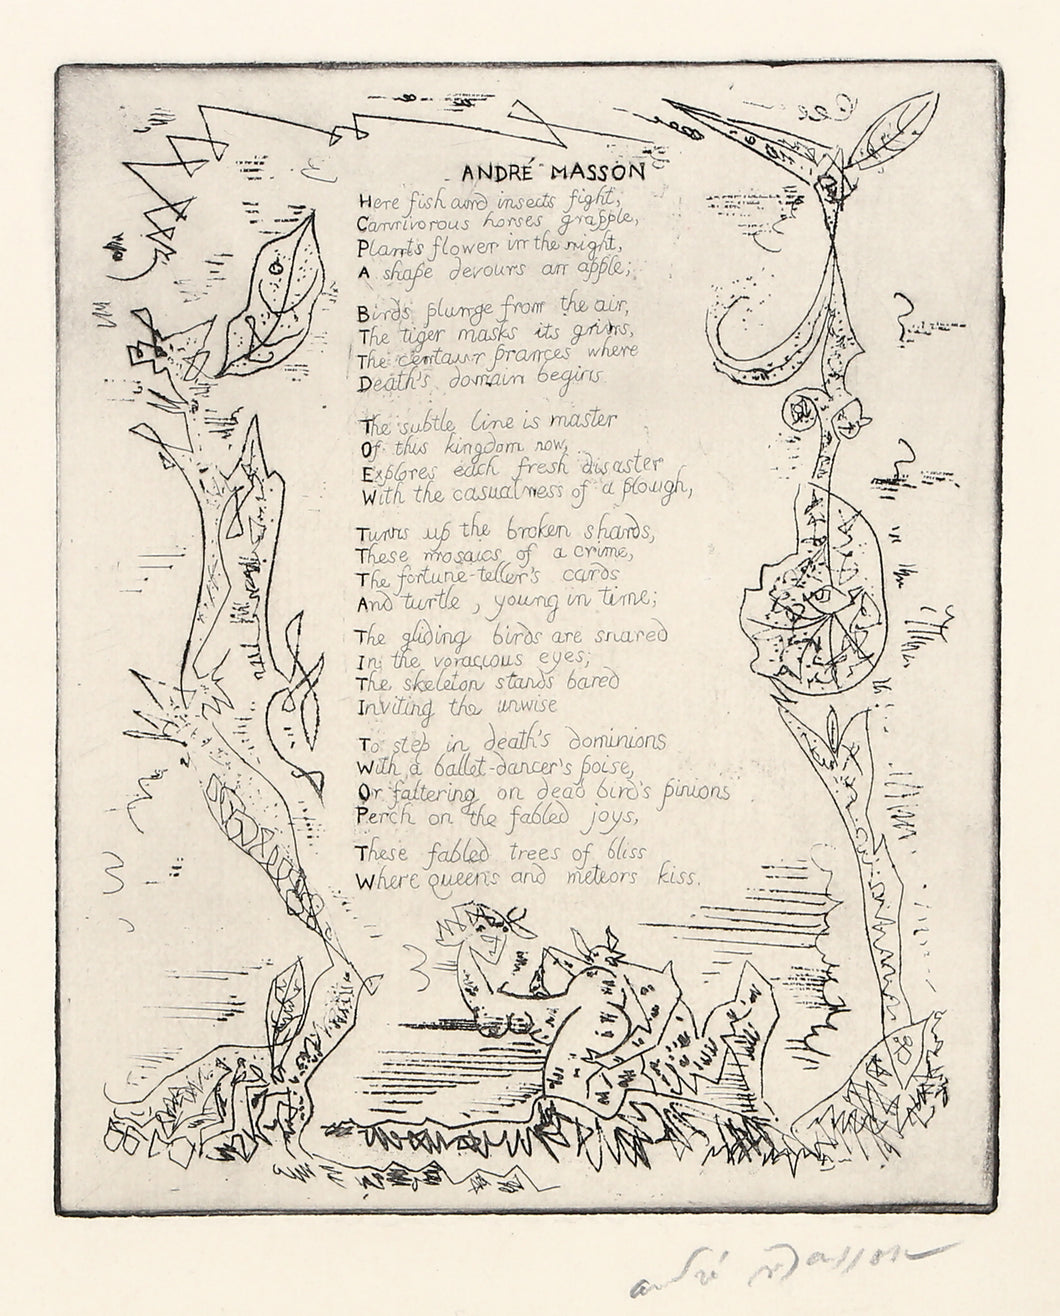 ANDRÉ MASSON
Here fish and insects fight,
Carnivorous horses grapple,
Plants flower in the night,
A shape devours an apple;
Birds plunge from the air,
The tiger masks its grins,
The centaur prances where
Death's domain begins.
The subtle line is master
Of this kingdom now,
Explores each fresh disaster
With the casualness of a plough,
Turns up the broken shards,
These mosaics of a crime,
The fortune-teller's cards
And turtle, young in time;
The gliding birds are snared
In the voracious eyes;
The skeleton stands bared
Inviting the unwise
To step in death's dominions
With a ballet-dancer's poise,
Or faltering on dead bird's pinions
Perch on the fabled joys,
These fabled trees of bliss
Where queens and meteors kiss.
andré Masson